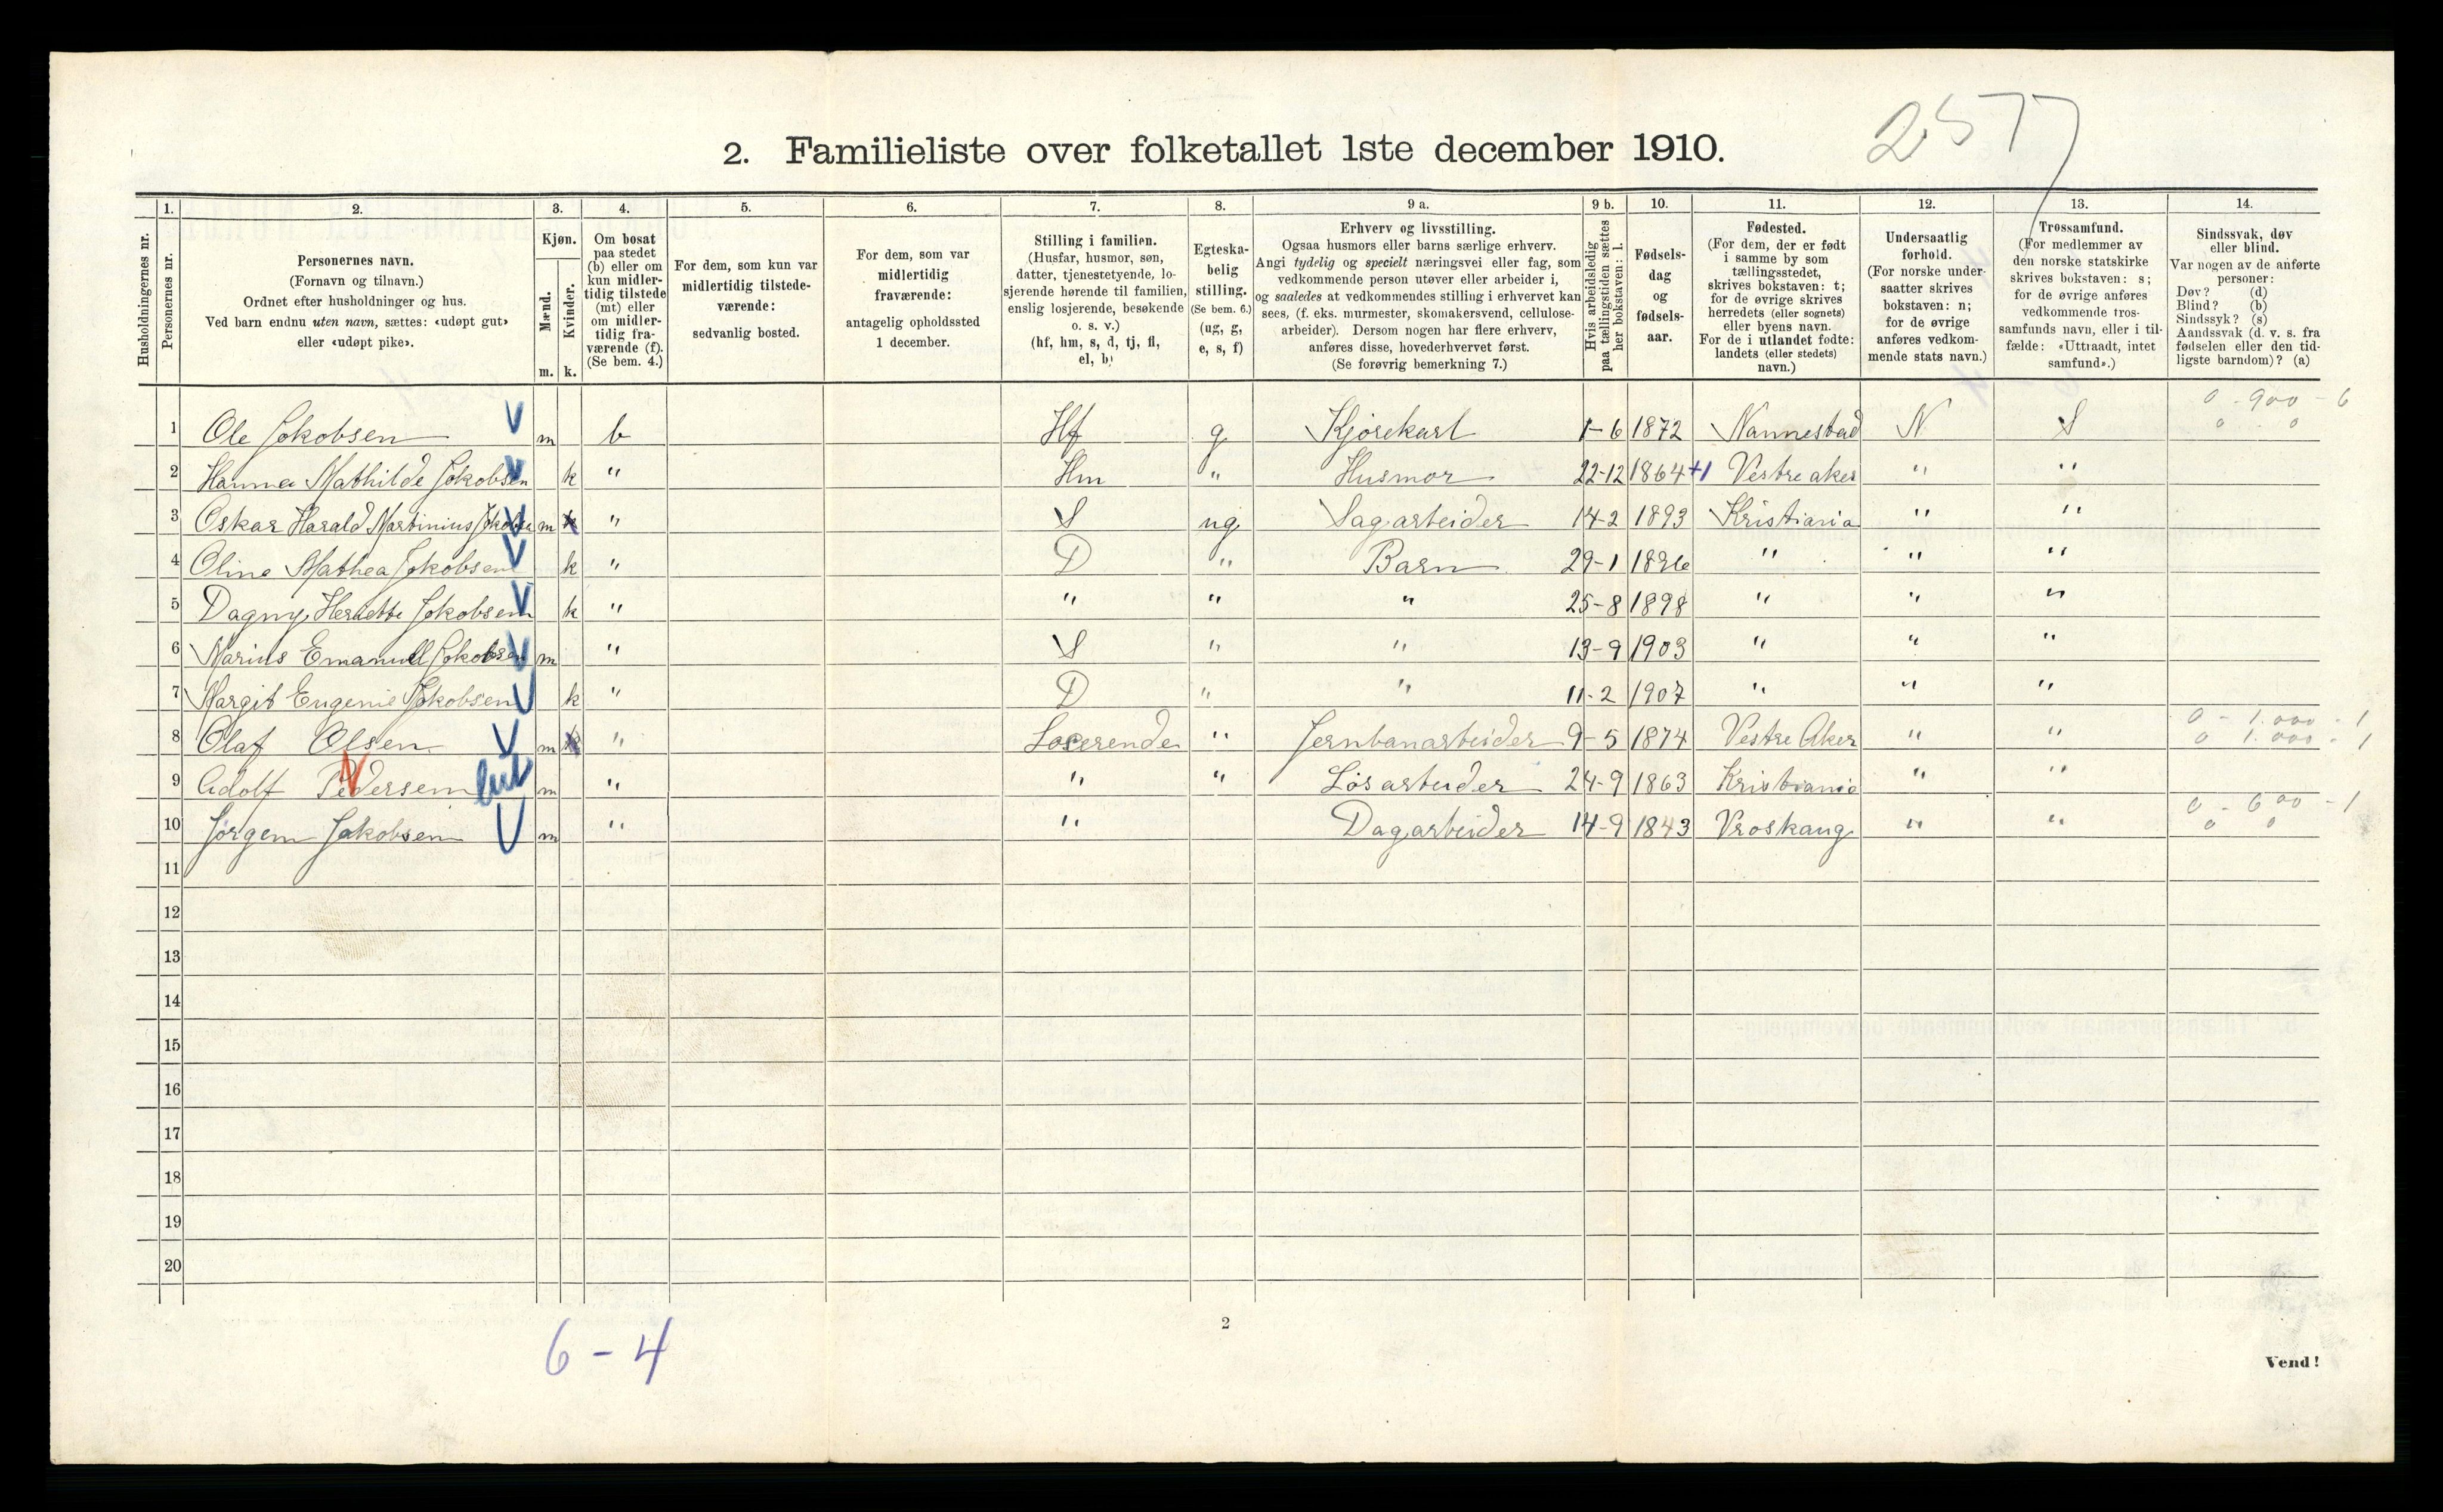 2577
2. Familieliste over folketallet 1ste december 1910.
Husholdningernes nr.
1. Personernes nr.
2. Personernes navn. (Fornavn og tilnavn.) Ordnet efter husholdninger og hus. Ved barn endnu uten navn, sættes: «udøpt gut» eller «udøpt pike».
3. Kjøn. Mænd. m. Kvinder. k.
4. Om bosat paa stedet (b) eller om kun midlertidig tilstede (mt) eller om midlertidig fraværende (f). (Se bem. 4.)
5. For dem, som kun var midlertidig tilstedeværende: sedvanlig bosted.
6. For dem, som var midlertidig fraværende: antagelig opholdssted 1 december.
7. Stilling i familien. (Husfar, husmor, søn, datter, tjenestetyende, losjerende hørende til familien, enslig losjerende, besøkende o. s. v.) (hf, hm, s, d, tj, fl, el, b)
8. Egteskabelig stilling. (Se bem. 6.) (ug, g, e, s, f)
9 a. Erhverv og livsstilling. Ogsaa husmors eller barns særlige erhverv. Angi tydelig og specielt næringsvei eller fag, som vedkommende person utøver eller arbeider i, og saaledes at vedkommendes stilling i erhvervet kan sees, (f. eks. murmester, skomakersvend, cellulosearbeider). Dersom nogen har flere erhverv, anføres disse, hovederhvervet først. (Se forøvrig bemerkning 7.)
9 b. Hvis arbeidsledig paa tællingstiden sættes her bokstaven: l.
10. Fødselsdag og fødselsaar.
11. Fødested. (For dem, der er født i samme by som tællingsstedet, skrives bokstaven: t; for de øvrige skrives herredets (eller sognets) eller byens navn. For de i utlandet fødte: landets (eller stedets) navn.)
12. Undersaatlig forhold. (For norske undersaatter skrives bokstaven: n; for de øvrige anføres vedkommende stats navn.)
13. Trossamfund. (For medlemmer av den norske statskirke skrives bokstaven: s; for de øvrige anføres vedkommende trossamfunds navn, eller i tilfælde: «Uttraadt, intet samfund».)
14. Sindssvak, døv eller blind. Var nogen av de anførte personer: Døv? (d) Blind? (b) Sindssyk? (s) Aandssvak (d. v. s. fra fødselen eller den tidligste barndom)? (a)
0 - 900 - 6
1 Ole Jakobsen V m b Hf g Kjørekarl 1-6 1872 Nannestad N S 0 0
2 Hanna Mathilde Jakobsen V k " Hm " Husmor 22-12 1864 +1 Vestre aker " "
3 Oskar Harald Martinius Jakobsen V m k " S ug Sagarbeider 14-2 1893 Kristiania " "
4 Oline Mathea Jakobsen V k " D " Barn 29-1 1896 " " "
5 Dagny Henriette Jakobsen V k " " " " 25-8 1898 " " "
6 Marius Emanuel Jakobsen V m " S " " 13-9 1903 " " "
7 Margit Eugenie Jakobsen V k " D " " 11-2 1907 " " "
0 - 1.000 - 1
8 Olaf Olsen V m k " Loserende " Jernbanarbeider 9-5 1874 Vestre Aker " " 0 1.000 - 1
9 Adolf Pedersen V m " " " Løsarbeider 24-9 1863 Kristiania " "
0 - 600 - 1
10 Jørgen Jakobsen V m " " Dagarbeider 14-9 1843 Vroskaug " " 0 0
11
12
13
14
15
16
17
18
19
20
2
6 - 4
Vend!